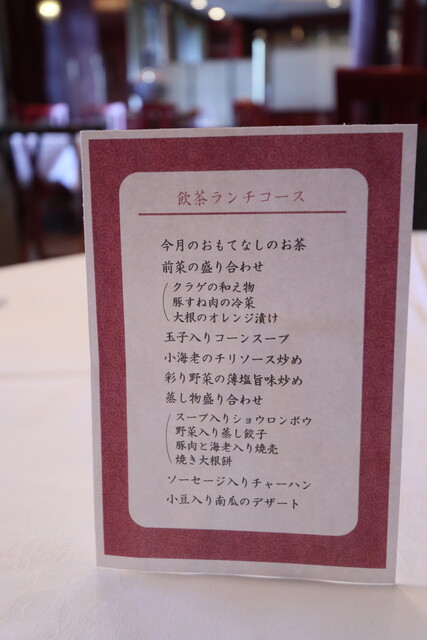 飲茶ランチコース
今月のおもてなしのお茶
前菜の盛り合わせ
クラゲの和え物
豚すね肉の冷菜
大根のオレンジ漬け
玉子入りコーンスープ
小海老のチリソース炒め
彩り野菜の薄塩旨味炒め
蒸し物盛り合わせ
スープ入りショウロンポウ
野菜入り蒸し餃子
豚肉と海老入り焼売
焼き大根餅
ソーセージ入りチャーハン
小豆入り南瓜のデザート